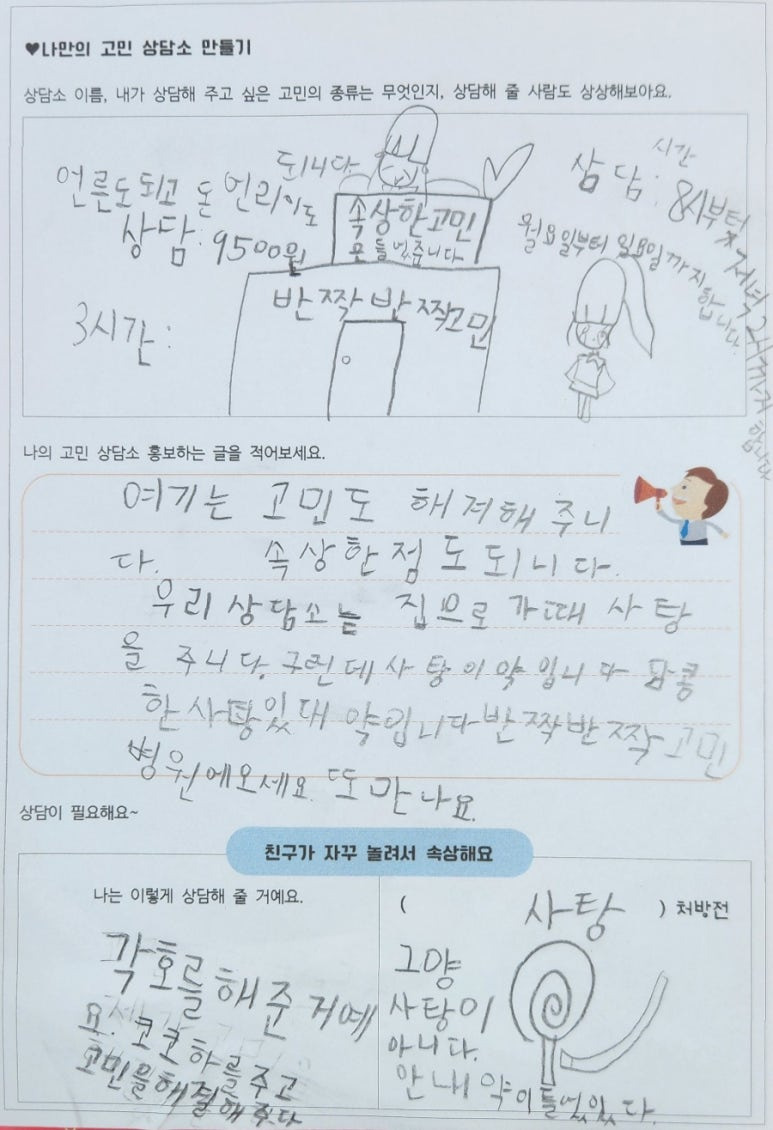 ♥나만의 고민 상담소 만들기
상담소 이름, 내가 상담해 주고 싶은 고민의 종류는 무엇인지, 상담해 줄 사람도 상상해보아요.
언른도 되고 돈 언리이도 되니다
상담: 9500원
3시간:
속상한고민
모들었줍니다
반짝반짝고민
시간
상담: 8시부터
저녁 2시까지 합니다
월요일부터 일요일까지 합니다.
나의 고민 상담소 홍보하는 글을 적어보세요.
여기는 고민도 해겨해 주니
다. 속상한점도 되니다.
우리 상담소는 집으로 가때 사탕
을 주니다. 구런데 사탕이 약입니다 닮콩
한 사탕있대 약입니다 반짝반짝 고민
병원에오세요. 또 만나요.
상담이 필요해요~
친구가 자꾸 놀려서 속상해요
나는 이렇게 상담해 줄 거예요.
각호를 해준 거예
요. 코코하를 주고
고민을 해결해주다
( 사탕 ) 처방전
그양
사탕이
아니다.
안내 약이 들었있다.